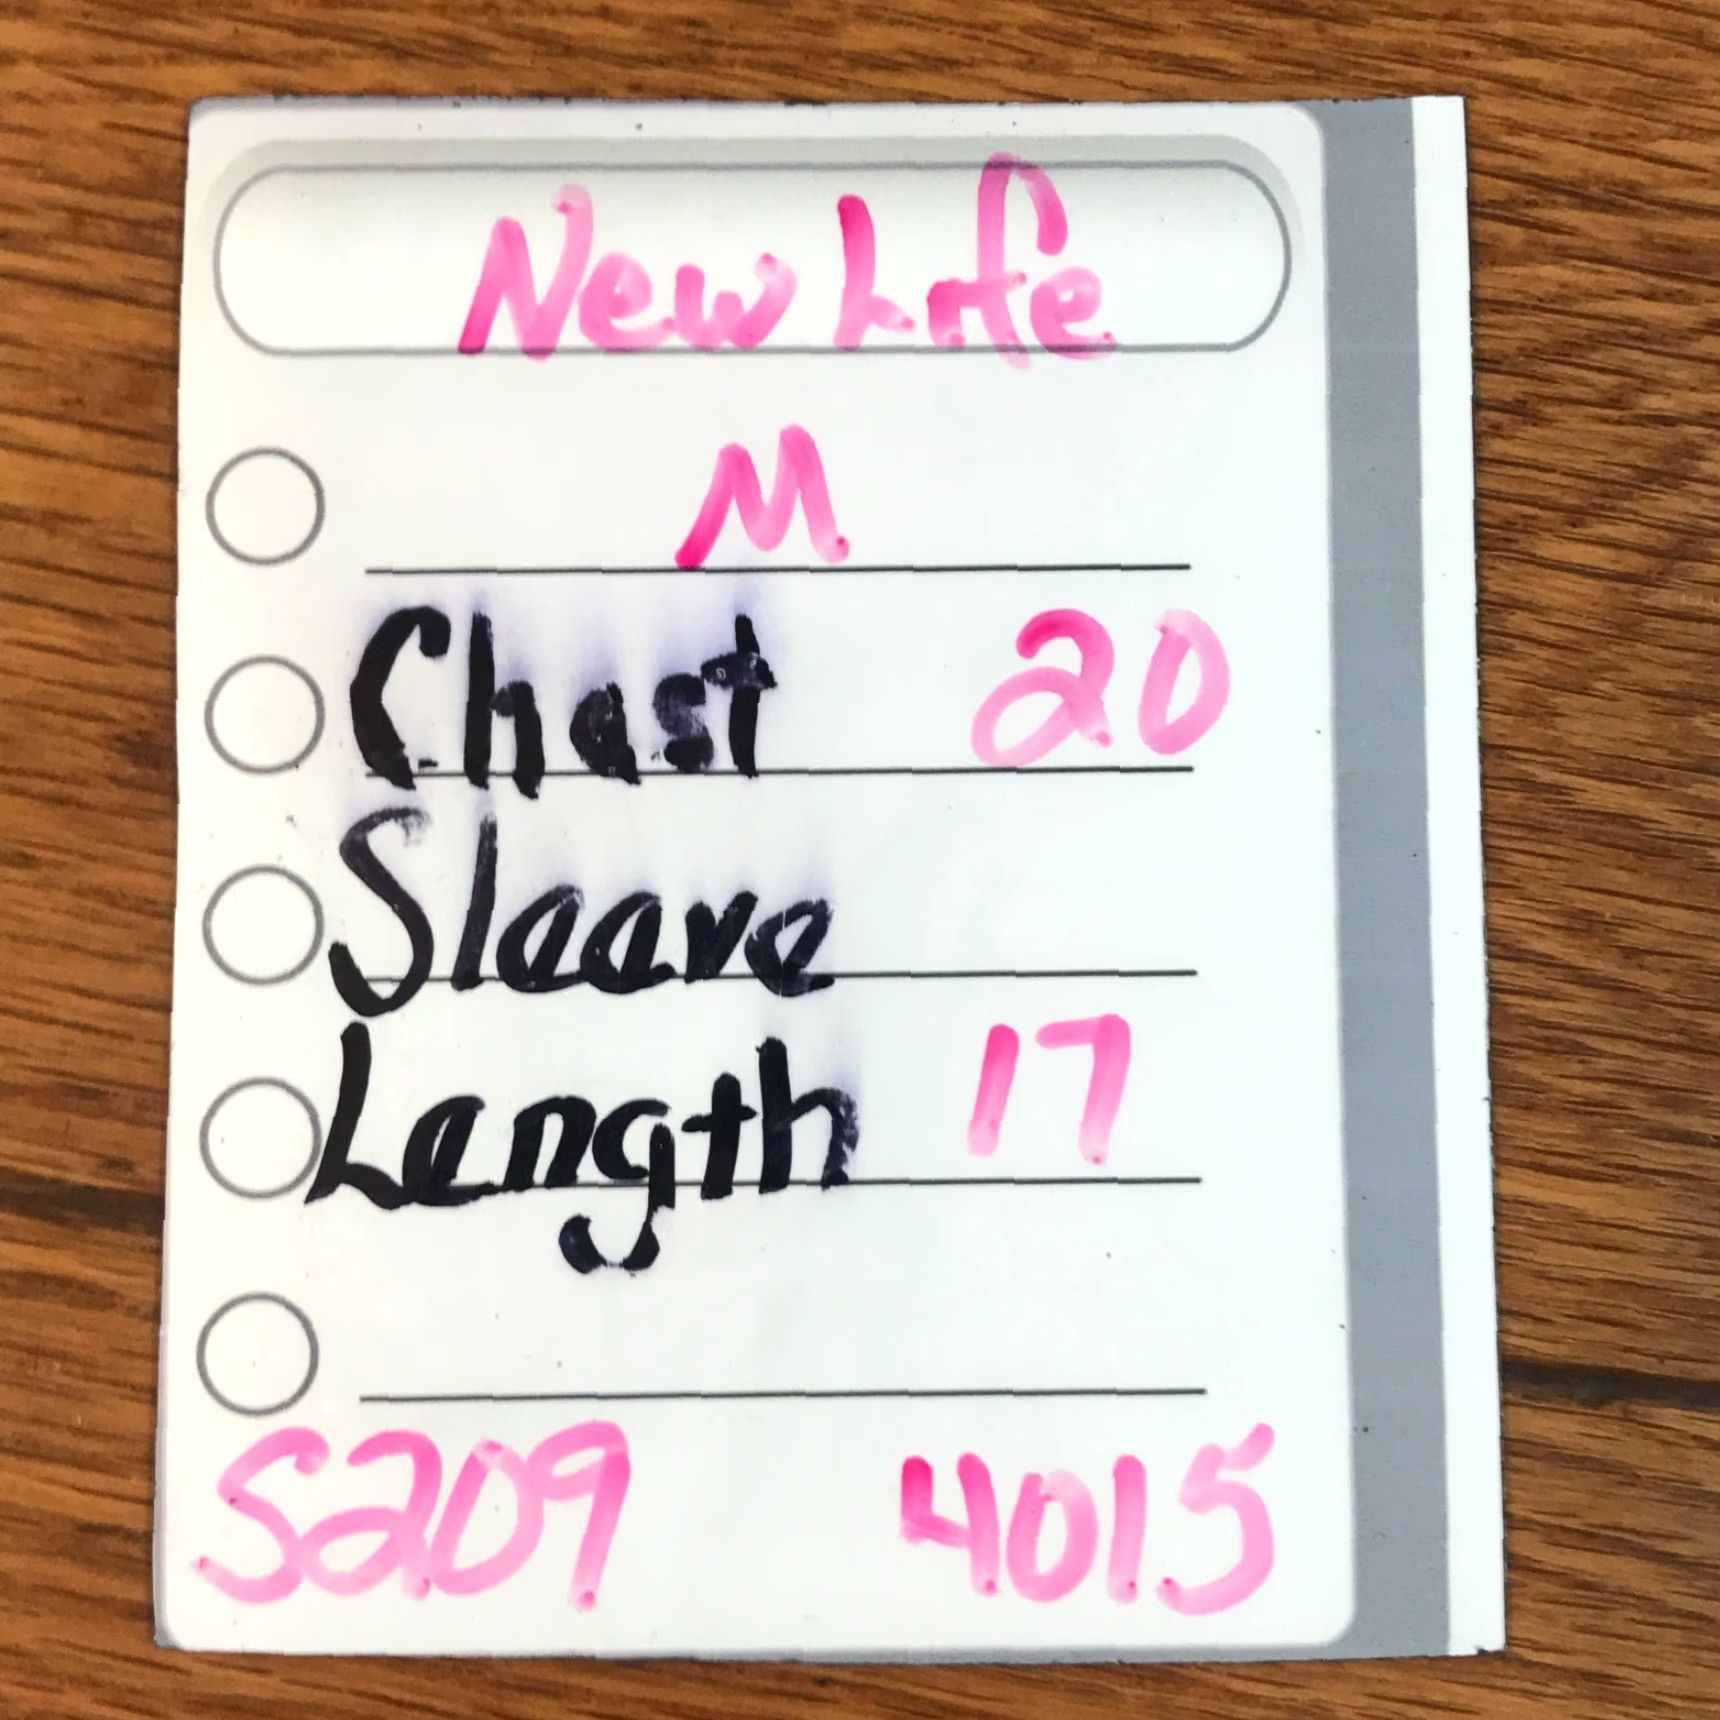 New Life
M
Chest 20
Sleeve
Length 17
S209 4015